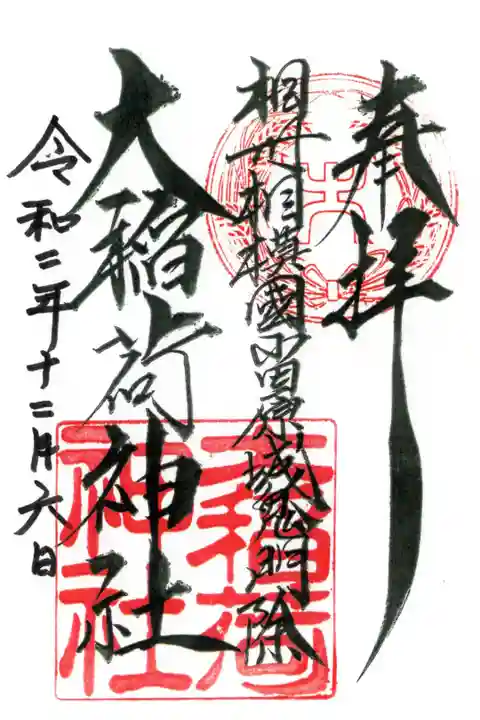 奉拝
相州相模國小田原城鬼門除
大稲荷神社
令和二年十二月六日
大稲荷
神社